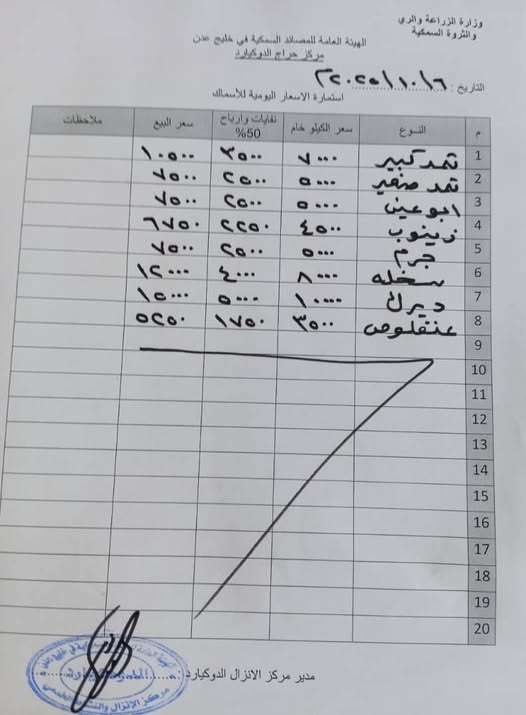 وزارة الزراعة والري
والثروة السمكية
الهيئة العامة للمصائد السمكية في خليج عدن
مركز حراج الدوكيارد
التاريخ : ٢٠٢٥/١٠/١٦م
استمارة الاسعار اليومية للأسماك
م النوع سعر الكيلو خام نفايات وأرباح 50% سعر البيع ملاحظات
1 ثمد كبير ٧٠٠٠ ٣٥٠٠ ١٠٥٠٠
2 ثمد صغير ٥٠٠٠ ٢٥٠٠ ٧٥٠٠
3 ابو عين ٥٠٠٠ ٢٥٠٠ ٧٥٠٠
4 زينوب ٤٥٠٠ ٢٢٥٠ ٦٧٥٠
5 جرم ٥٠٠٠ ٢٥٠٠ ٧٥٠٠
6 سخله ٨٠٠٠ ٤٠٠٠ ١٢٠٠٠
7 ديرك ١٠٠٠٠ ٥٠٠٠ ١٥٠٠٠
8 عنقلوص ٣٥٠٠ ١٧٥٠ ٥٢٥٠
9
10
11
12
13
14
15
16
17
18
19
20
مدير مركز الانزال الدوكيارد :
مركز الانزال